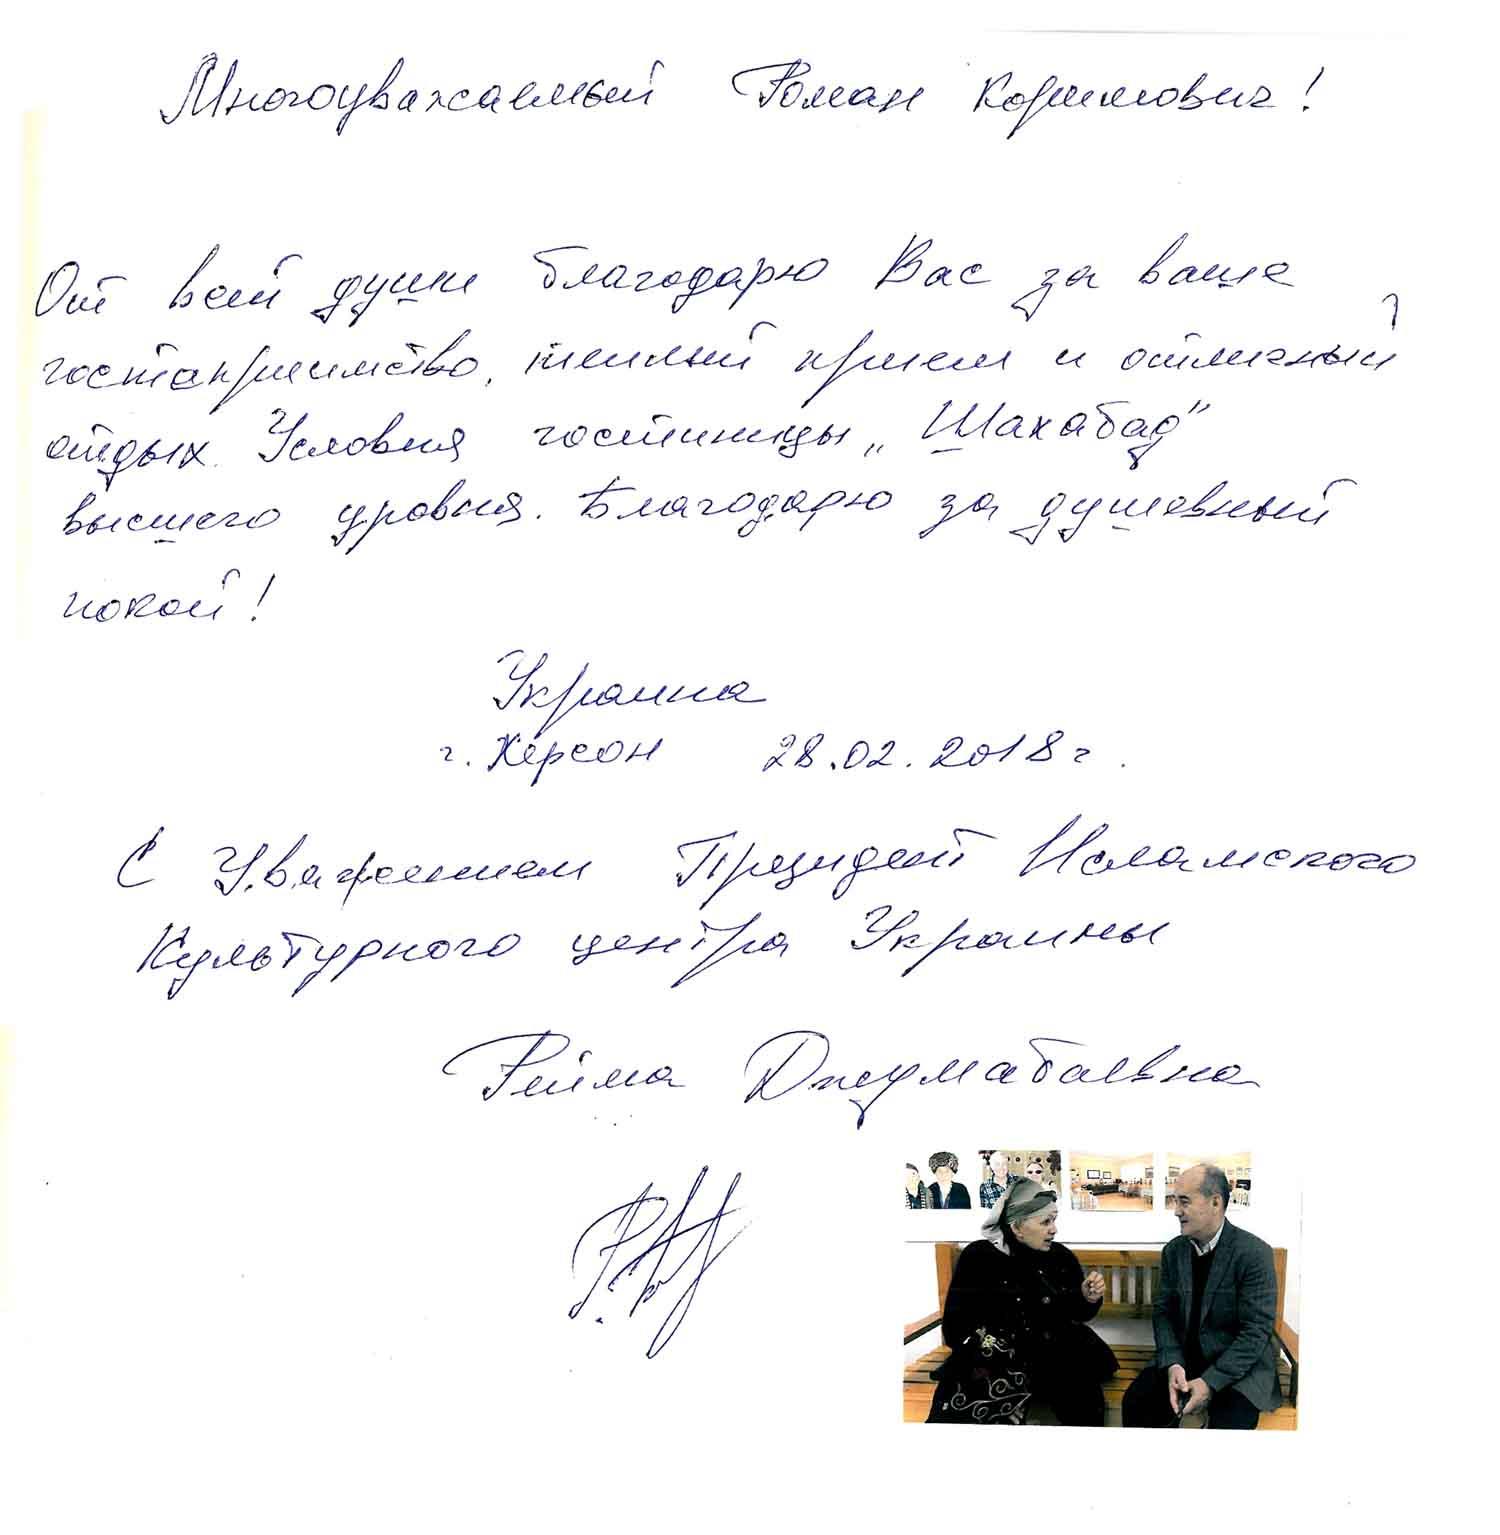 Многоуважаемый Роман Коримович!
От всей души благодарю Вас за ваше
гостеприимство, теплый прием и отличный
отдых. Условия гостиницы „Шахабад"
высшего уровня. Благодарю за душевный
покой!
Украина
г. Херсон 28.02.2018 г.
С Уважением Президент Исламского
Культурного центра Украины
Рейма Джумабаевна